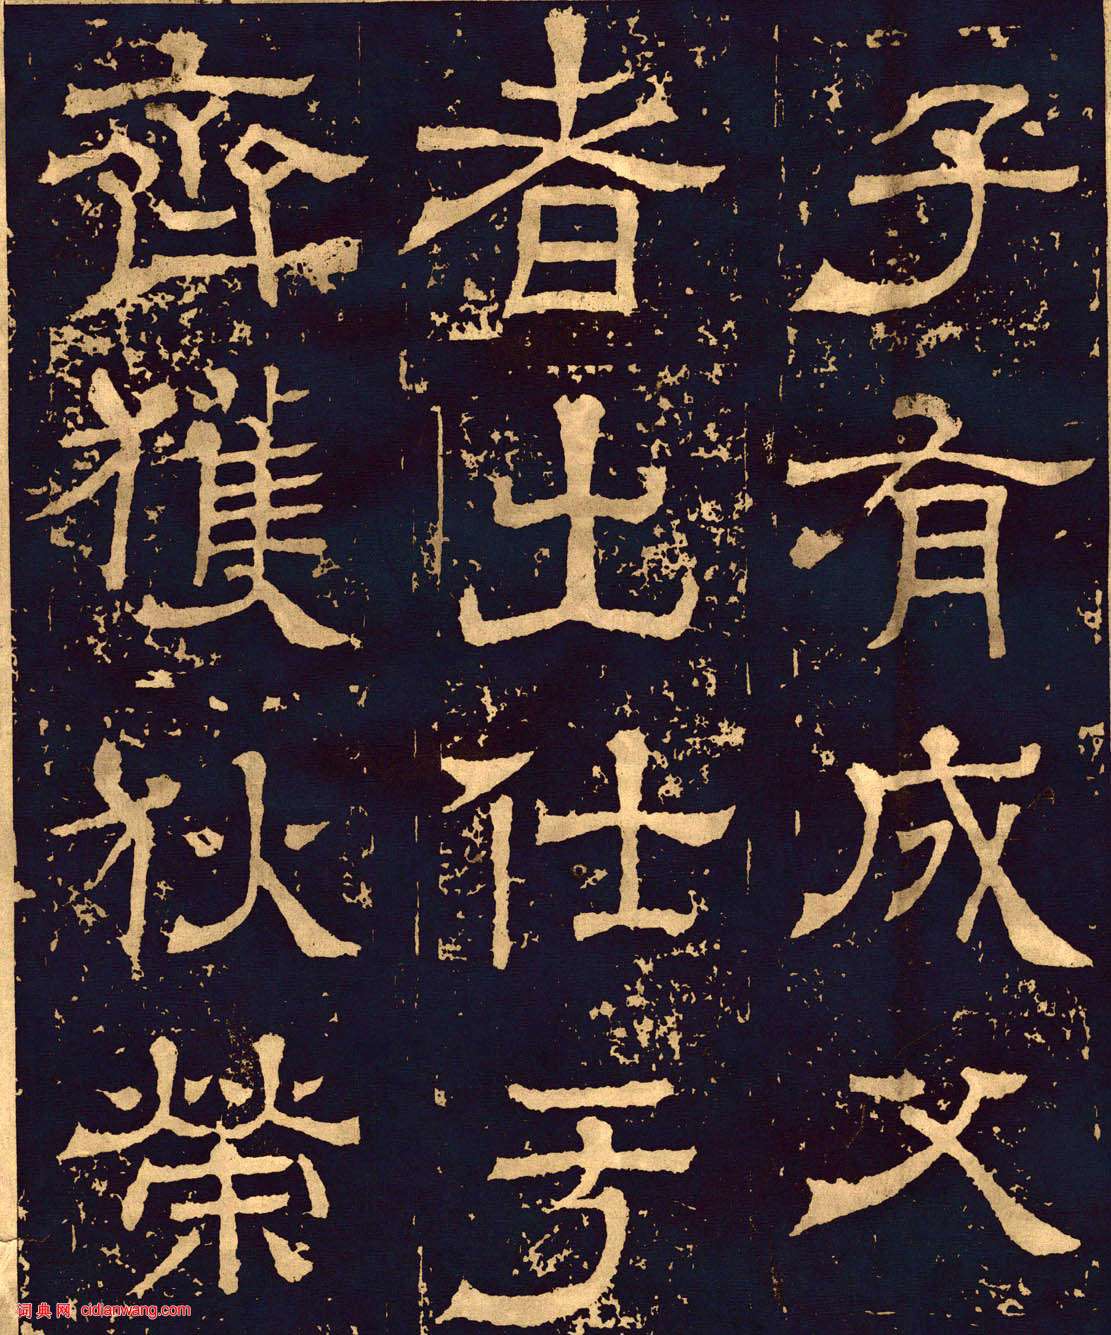 子有成父
者出仕于
齊獲狄榮
词典网 cidianwang.com